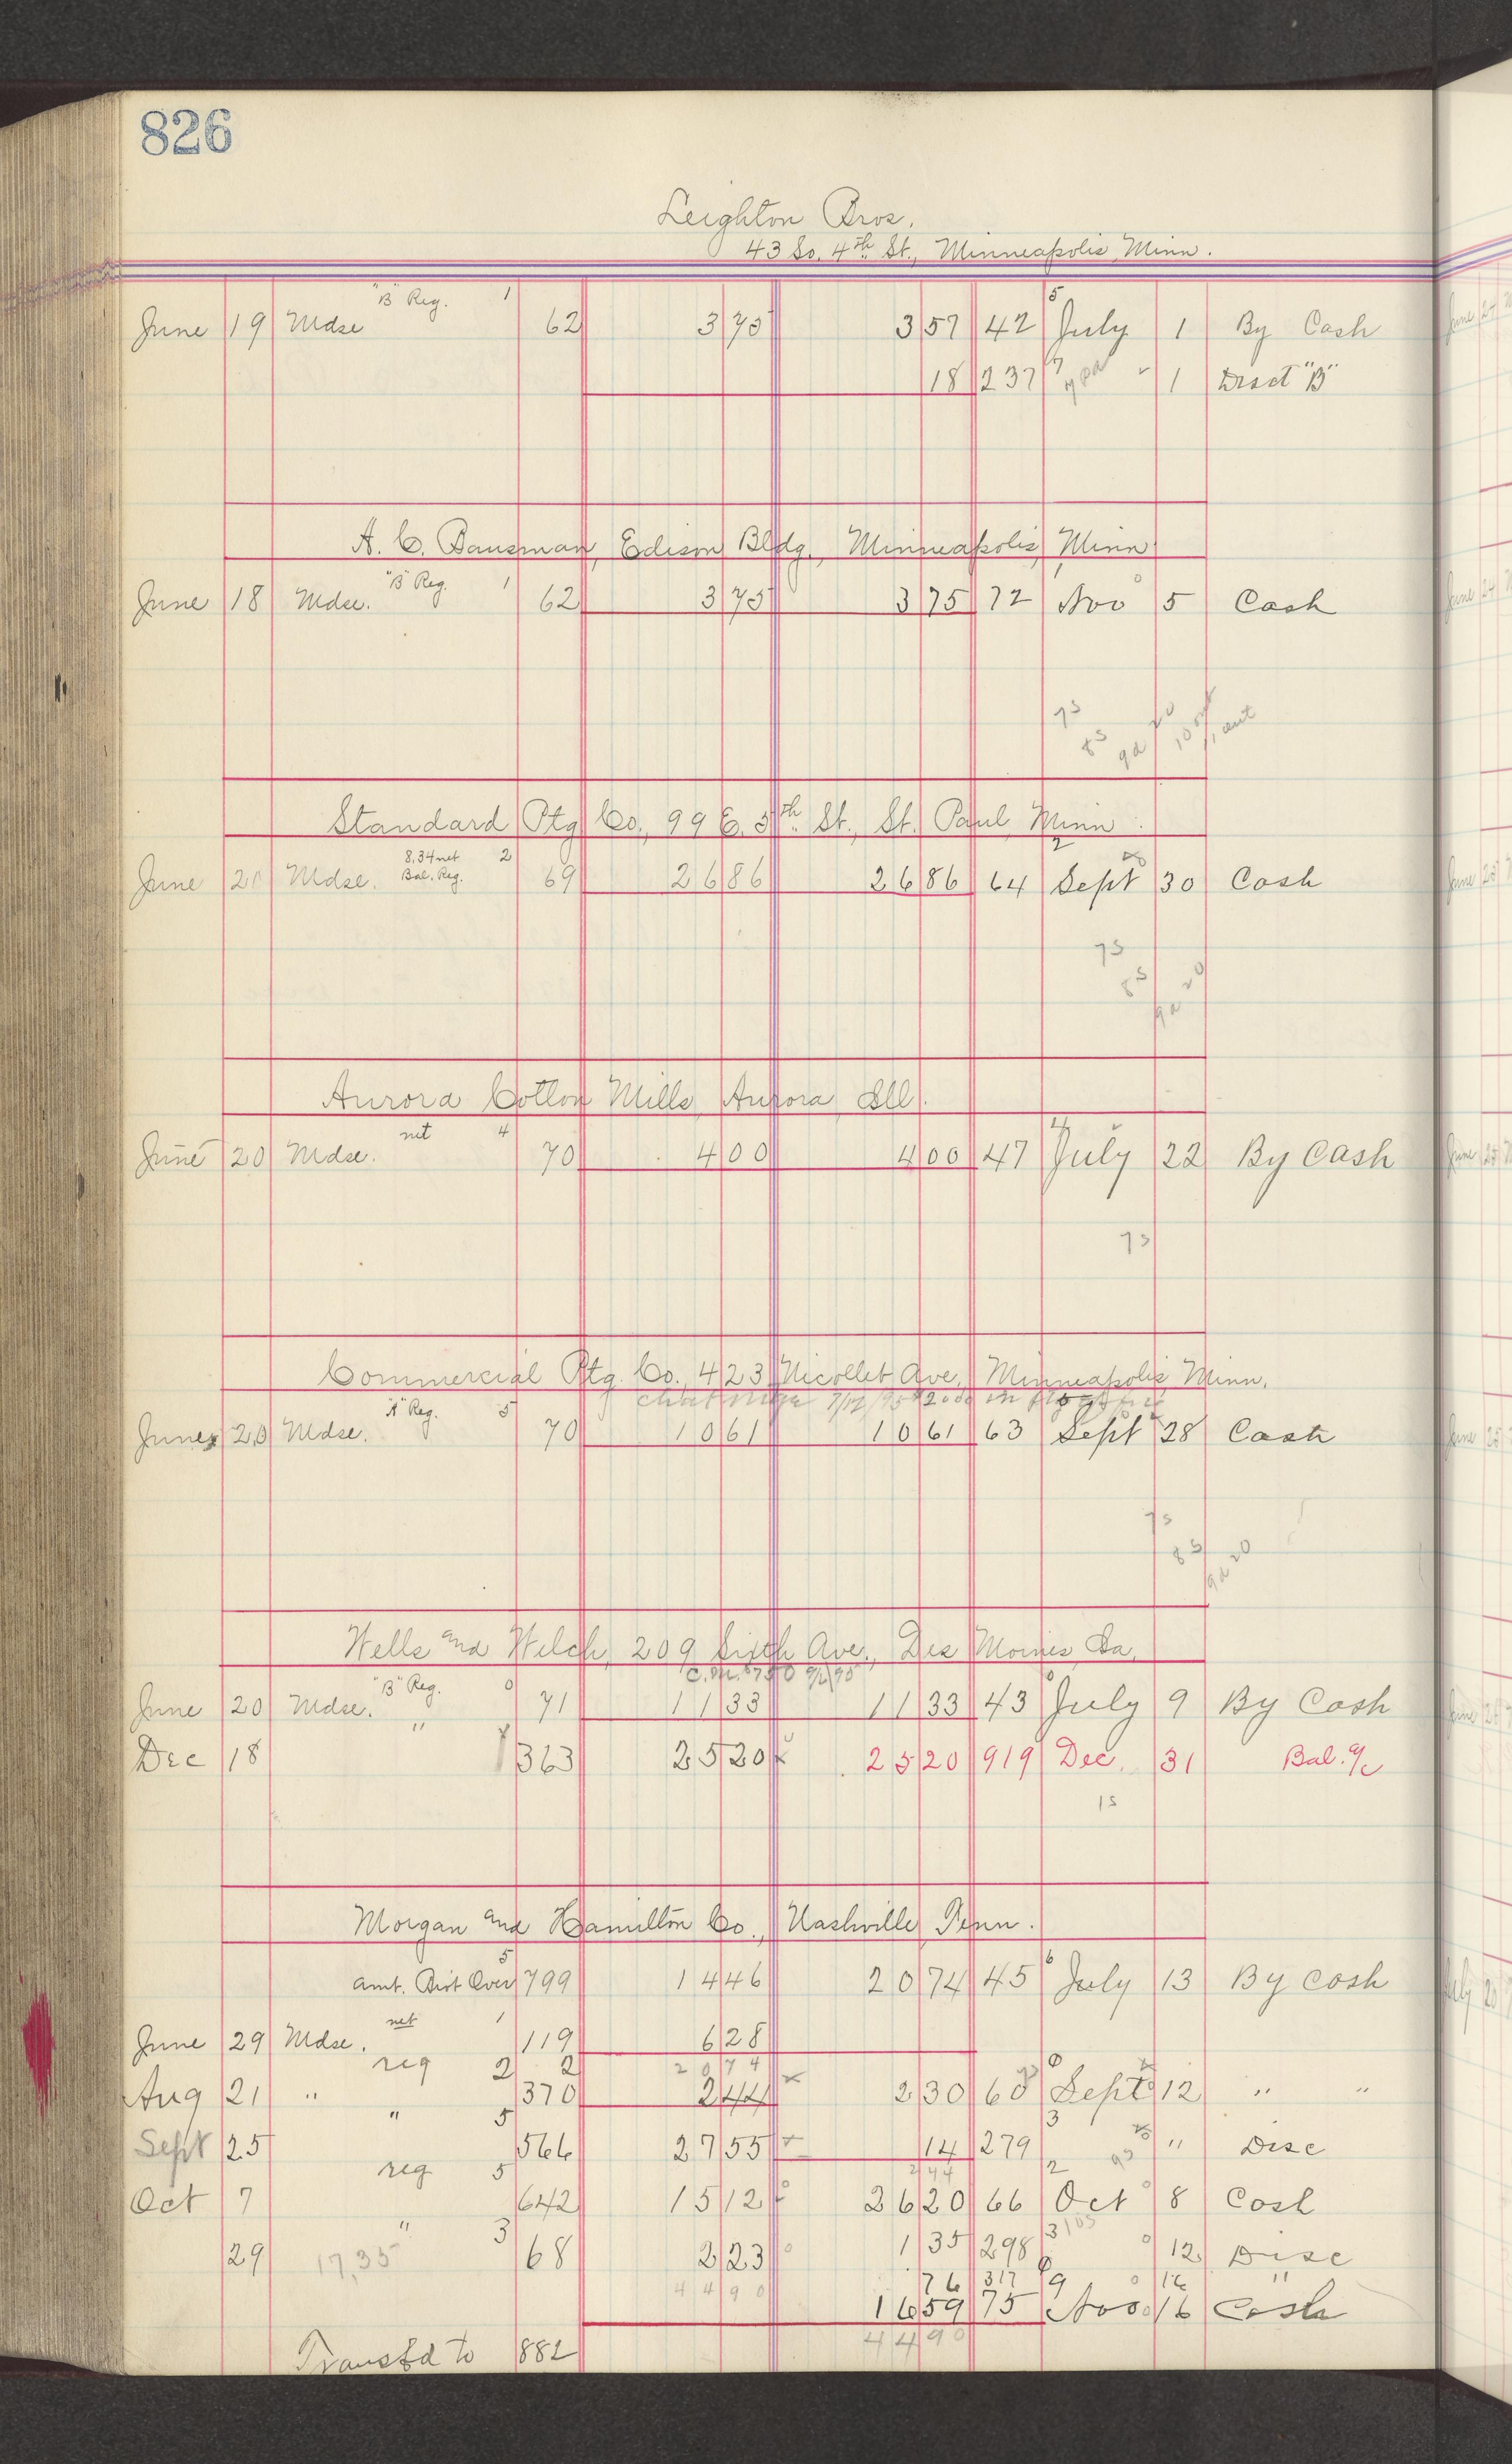 826
Leighton Bros.
43 So. 4th St., Minneapolis, Minn.
"B" Reg. 1 5
June 19 Mdse 62 3 75 3 57 42 July 1 By Cash
18 237 " 1 Disct "B"
A. C. Bausman, Edison Bldg., Minneapolis, Minn
"B" Reg. 1
June 18 Mdse. 62 3 75 3 75 72 Nov 5 Cash
7s
8s 9d 20 10 11
Standard Ptg Co., 99 E. 5th St., St. Paul, Minn.
8.34 net 2 2
June 20 Mdse. Bal. Reg. 69 26 86 26 86 64 Sept 30 Cash
7s
8s
9d 20
Aurora Cotton Mills, Aurora, Ill.
net 4 4
June 20 Mdse. 70 4 00 4 00 47 July 22 By Cash
7s
Commercial Ptg. Co., 423 Nicollet Ave, Minneapolis Minn,
7/12/95
"A" Reg. 5
June 20 Mdse. 70 10 61 10 61 63 Sept 28 Cash
7s
8s
9d 20
Wells and Welch, 209 Sixth Ave., Des Moines, Ia,
"B" Reg. 0 C.M. 0
June 20 Mdse. 71 11 33 11 33 43 July 9 By Cash
Dec 18 " 363 25 20 25 20 919 Dec. 31 Bal. a/c
1s
Morgan and Hamilton Co., Nashville, Tenn.
5 6
amt. Brot Over 799 14 46 20 74 45 July 13 By Cash
net 1
June 29 Mdse. 119 6 28
reg 2 2 20 74
Aug 21 " 370 2 44 2 30 60 Sept 12 " "
" 5 3
Sept 25 566 27 55 14 279 9s " Disc
reg 5 2 44 2
Oct 7 642 15 12 26 20 66 Oct 8 Cash
" 3 3 10s
29 17,35 68 2 23 1 35 298 12 Disc
44 90 76 317 9 16 "
16 59 75 Nov 16 Cash
Transfd to 882 44 90